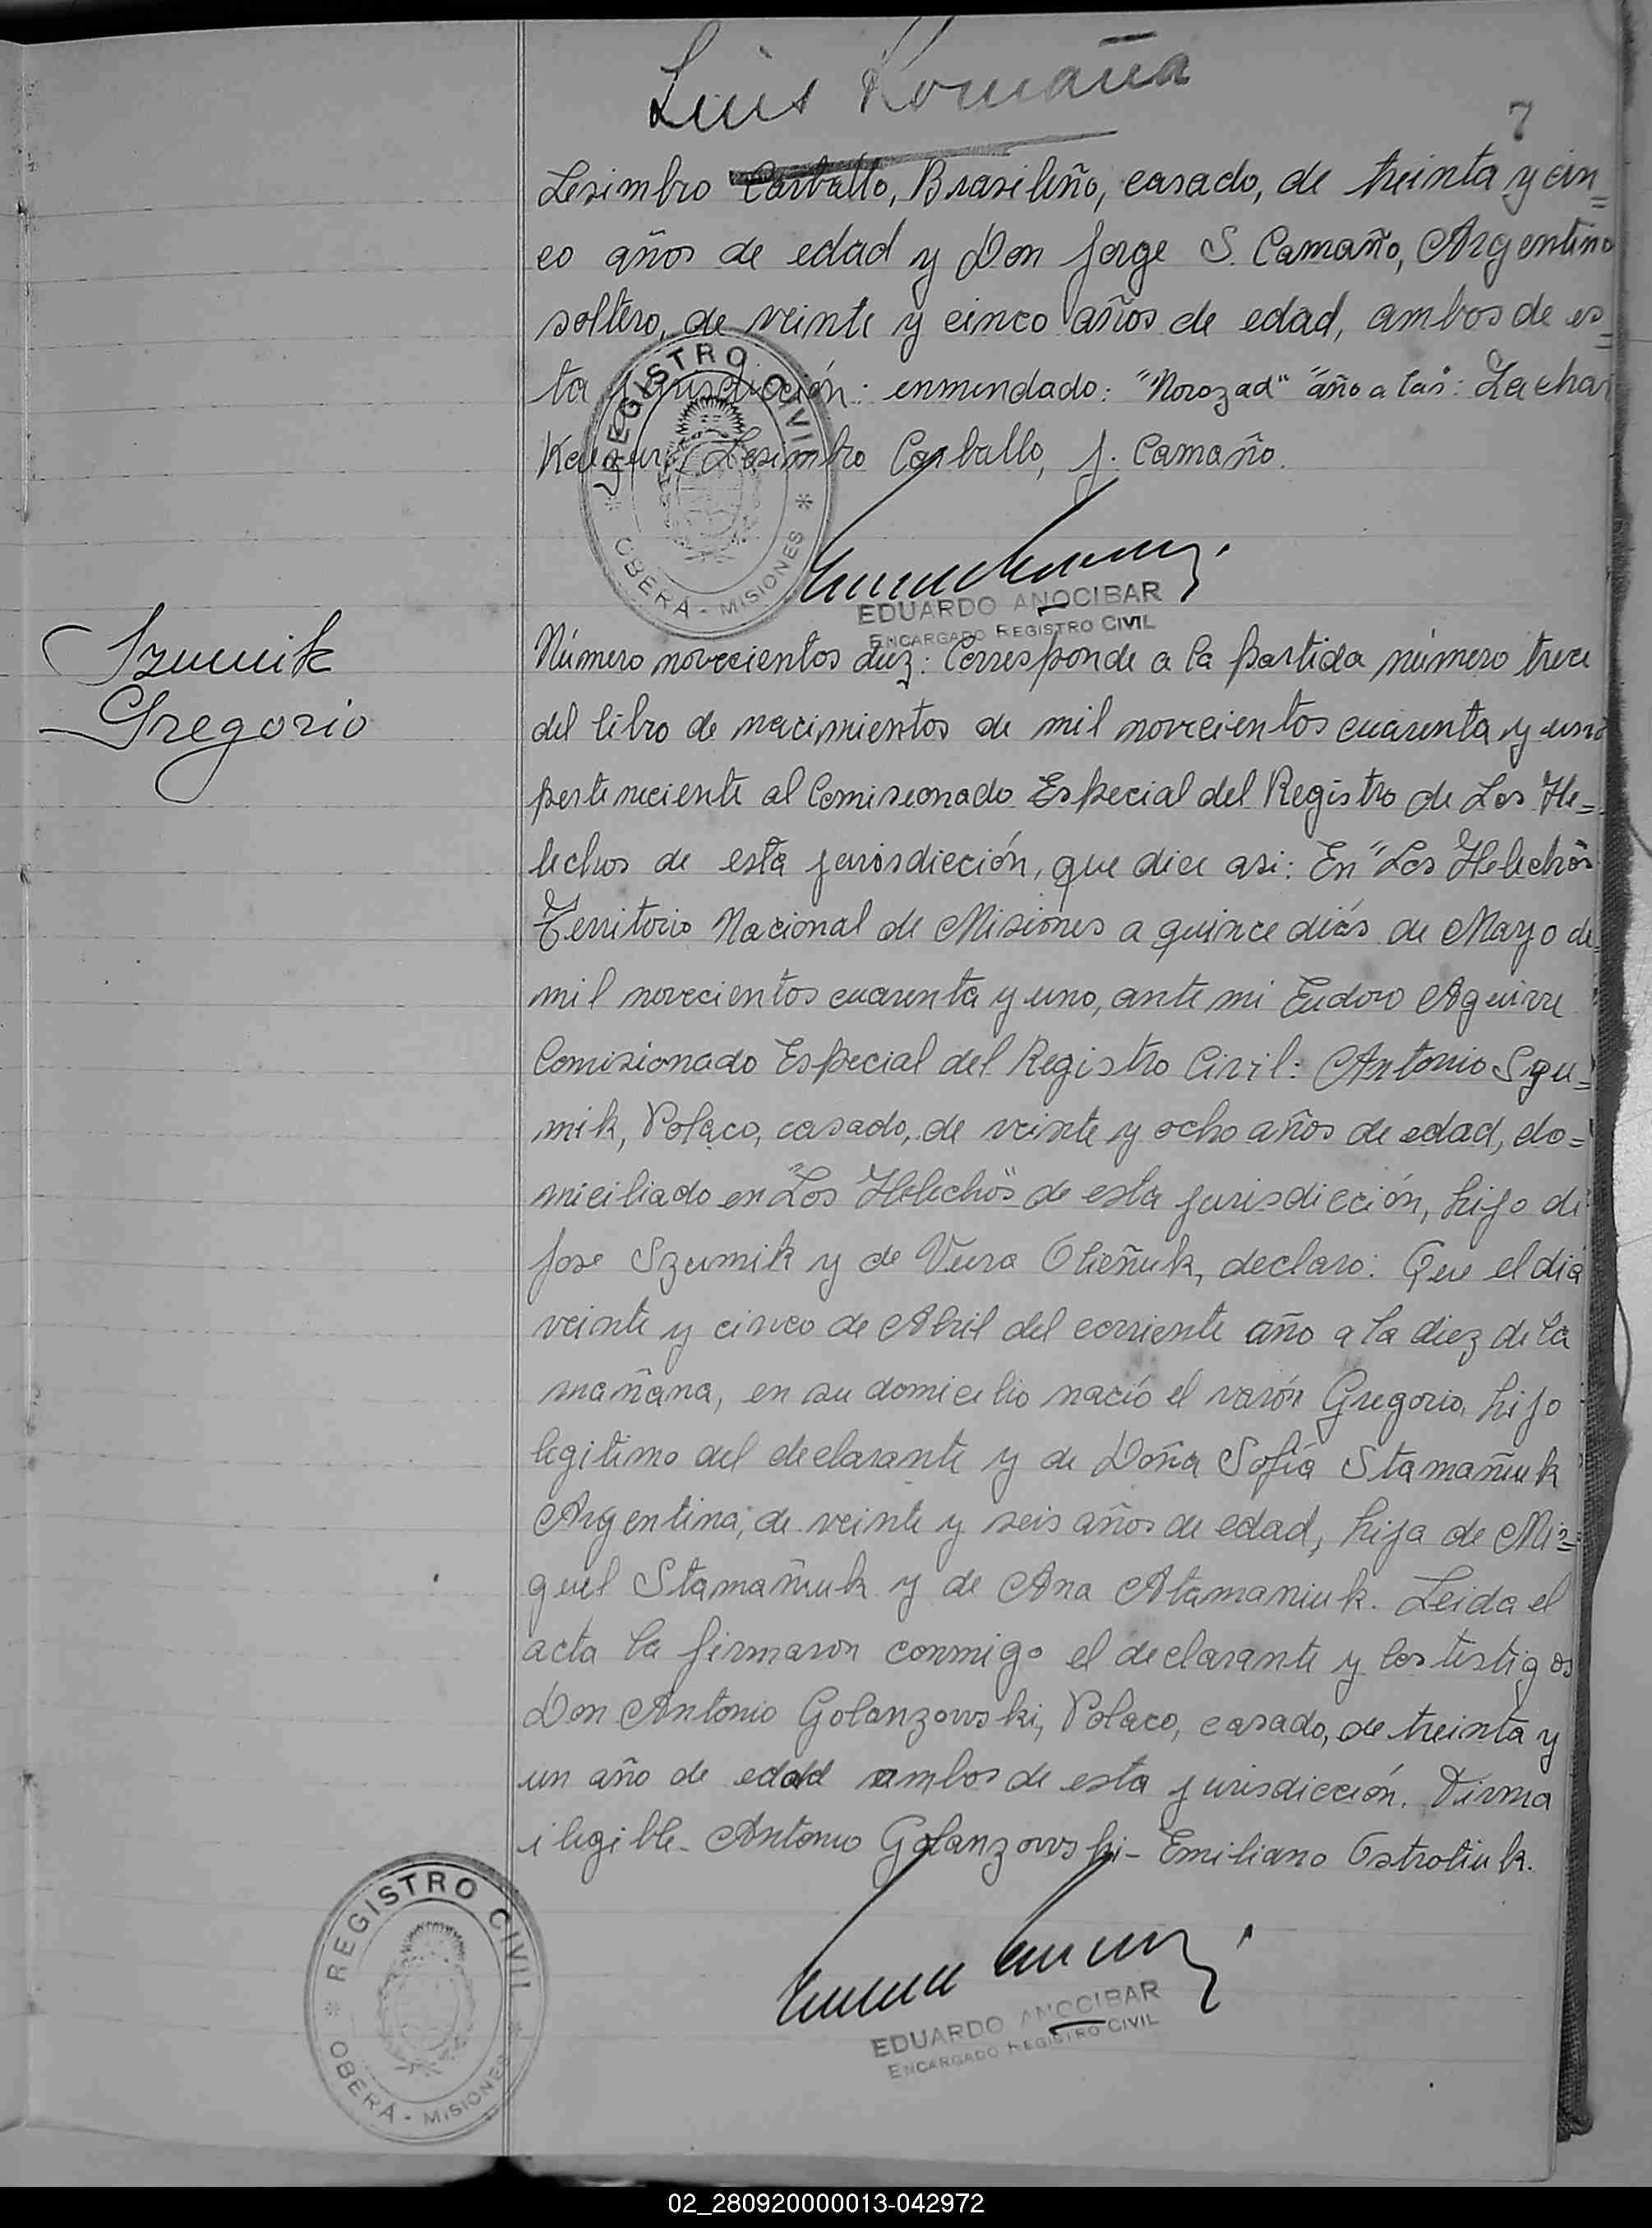 Luis Romaña
7
Lesimbro Carballo, Brasileño, casado, de treinta y cin=
co años de edad y Don Jorge S. Camaño, Argentino
soltero, de veinte y cinco años de edad, ambos de es=
ta jurisdicción: enmendado: "Norozad" "año a las": Zachar
Lesimbro Carballo, J. Camaño.
REGISTRO CIVIL
OBERÁ - MISIONES
EDUARDO ANOCIBAR
ENCARGADO REGISTRO CIVIL
Szumik
Gregorio
Número novecientos diez: Corresponde a la partida número trece
del libro de nacimientos de mil novecientos cuarenta y uno
perteneciente al Comiseonado Especial del Registro de Los He=
lechos de esta jurisdicción, que dice asi: En "Los Helechos"
Territorio Nacional de Misiones a quince días de Mayo de
mil novecientos cuarenta y uno, ante mi Eudoro Aguirre
Comisionado Especial del Registro Civil: Antonio Szu=
mik, Polaco, casado, de veinte y ocho años de edad, do=
miciliado en "Los Helechos" de esta jurisdicción, hijo de
Jose Szumik y de Vera Olieñuk, declaro: Que el día
veinte y cinco de Abril del corriente año a la diez de la
mañana, en su domicilio nació el varón Gregorio, hijo
legitimo del declarante y de Doña Sofía Stamañuk
Argentina, de veinte y seis años de edad, hija de Mi=
guel Stamañuk y de Ana Atamaniuk. Leida el
acta la firmaron conmigo el declarante y los testigos
Don Antonio Golanzowski, Polaco, casado, de treinta y
un año de edad ambos de esta jurisdicción. Firma
ilegible - Antonio Golanzowski - Emiliano Ostroliuk.
REGISTRO CIVIL
OBERÁ - MISIONES
EDUARDO ANOCIBAR
ENCARGADO REGISTRO CIVIL
02_280920000013-042972